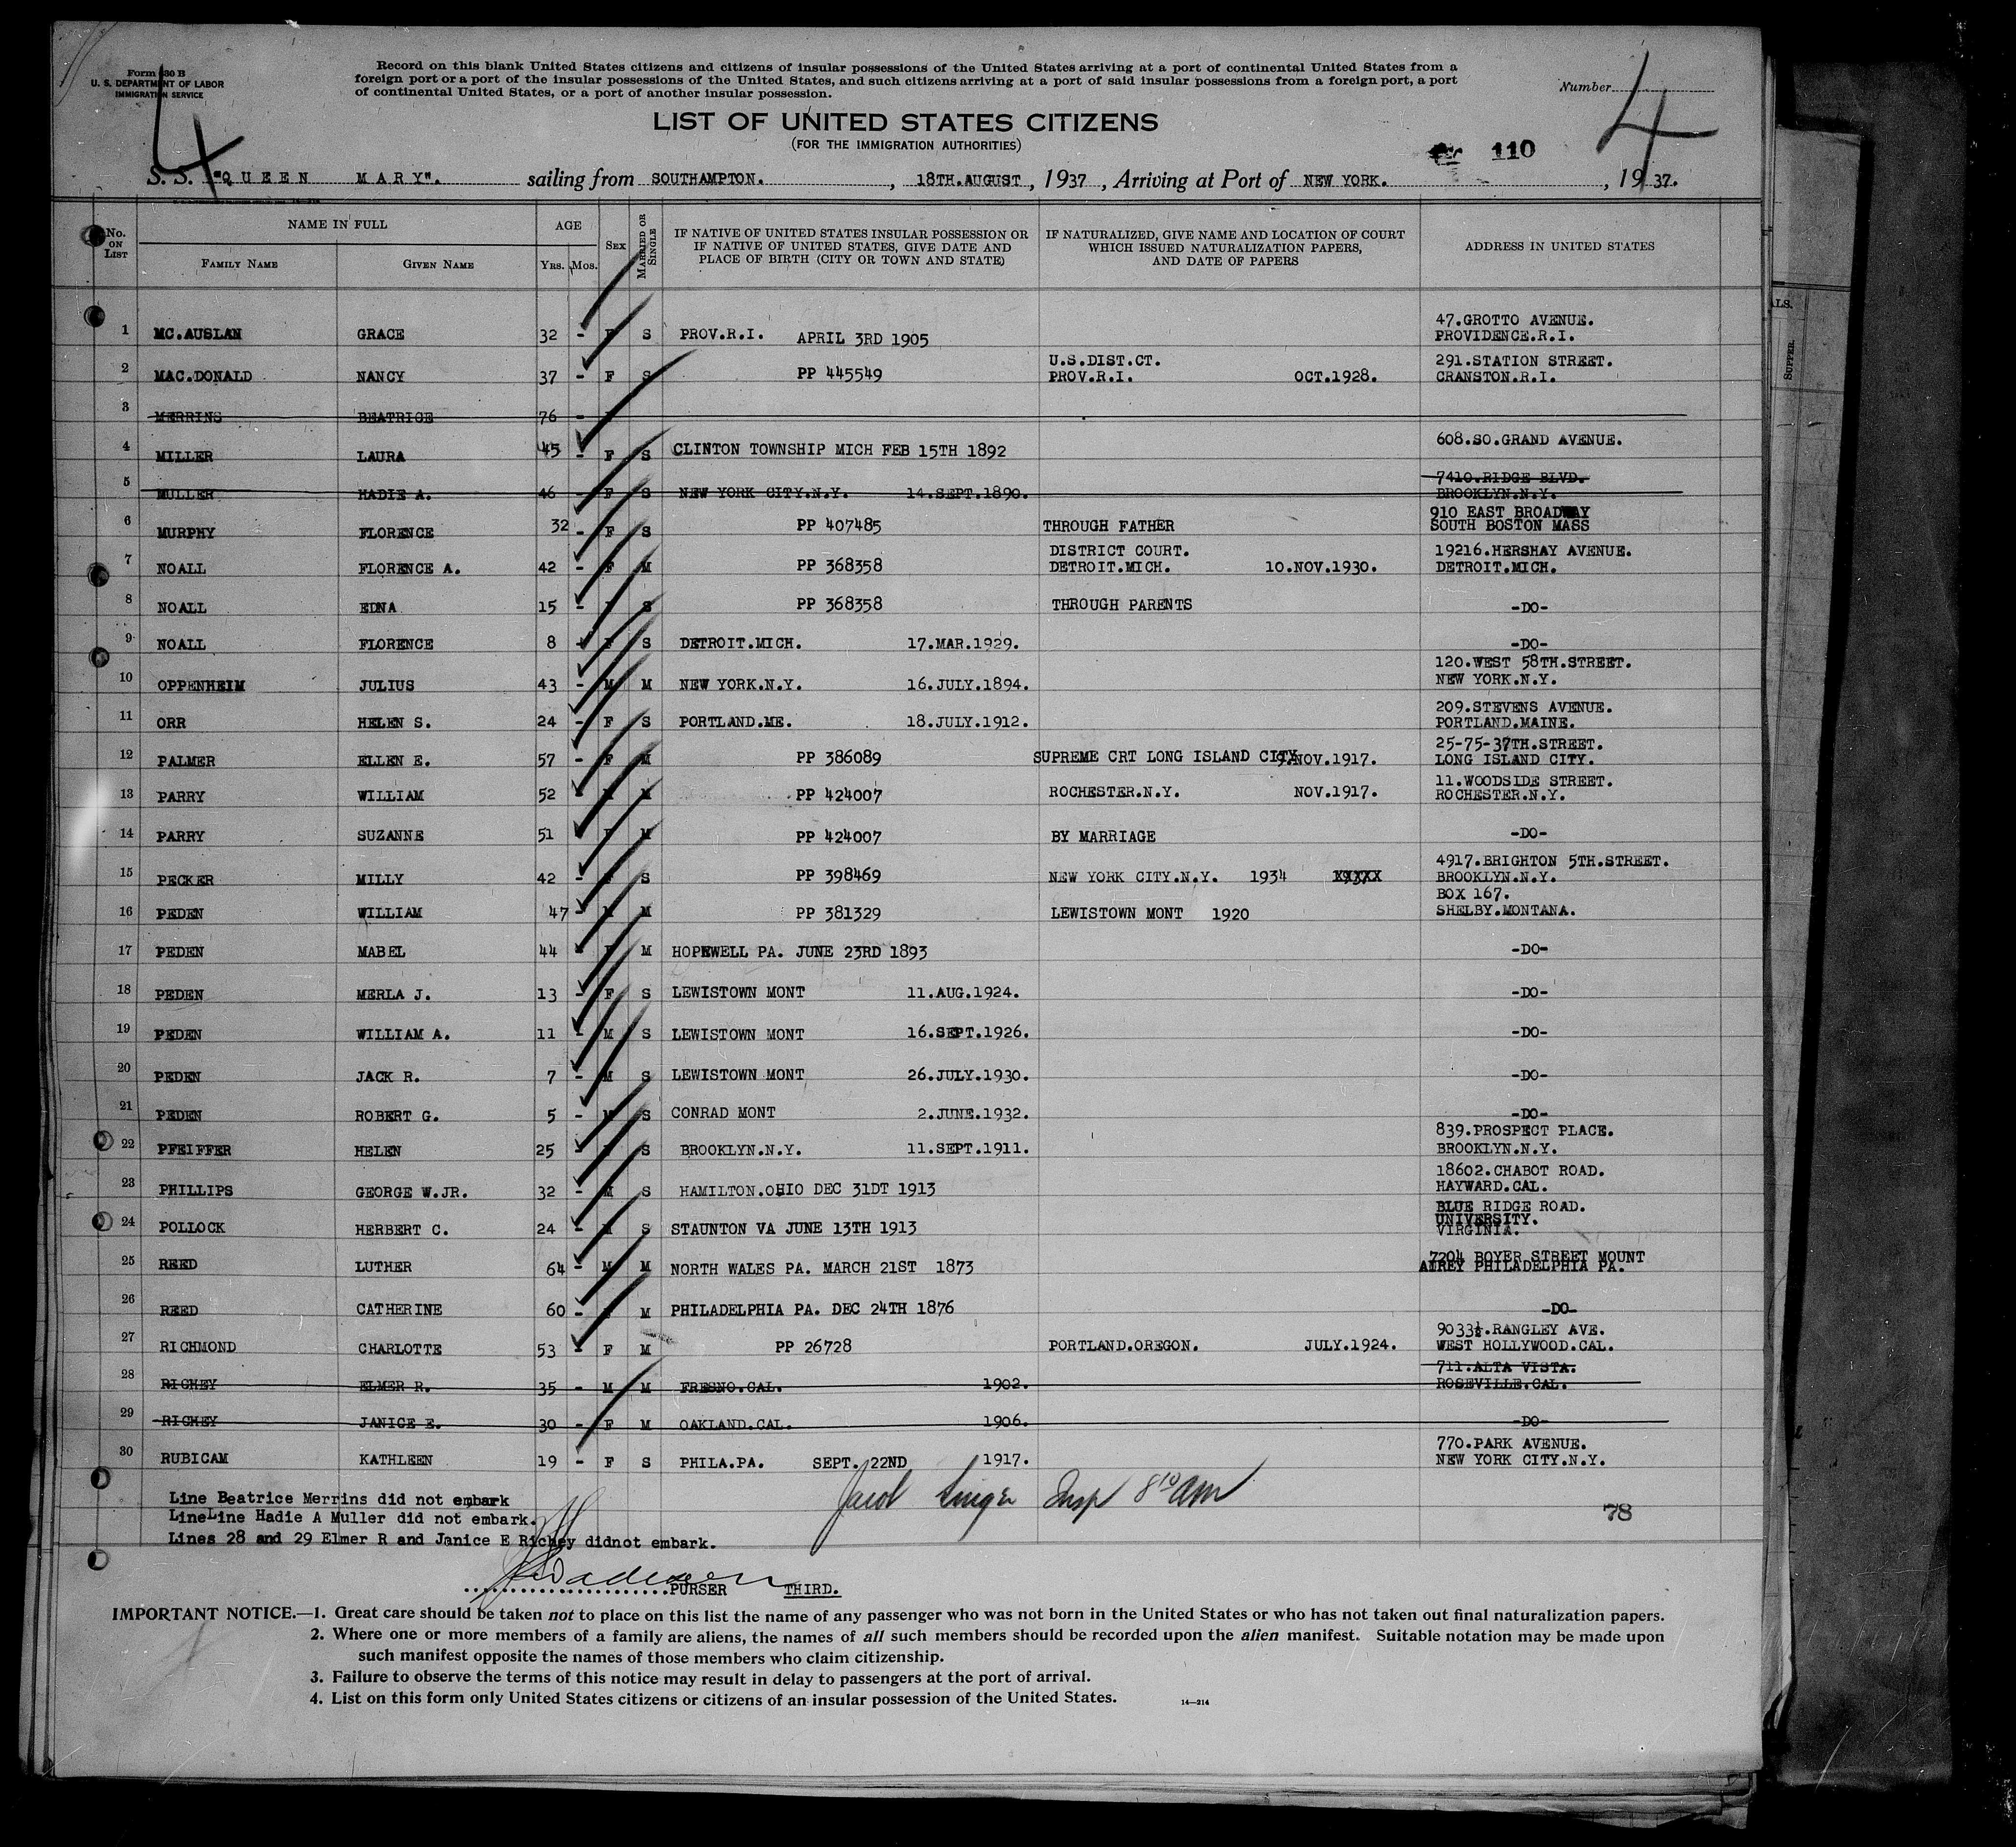 Form 630 B
U. S. DEPARTMENT OF LABOR
IMMIGRATION SERVICE
Record on this blank United States citizens and citizens of insular possessions of the United States arriving at a port of continental United States from a
foreign port or a port of the insular possessions of the United States, and such citizens arriving at a port of said insular possessions from a foreign port, a port
of continental United States, or a port of another insular possession.
Number
4
4
LIST OF UNITED STATES CITIZENS
(FOR THE IMMIGRATION AUTHORITIES)
110
S. S. "QUEEN MARY". sailing from SOUTHAMPTON. , 18TH.AUGUST , 1937 , Arriving at Port of NEW YORK. , 1937.
No. ON LIST
NAME IN FULL
FAMILY NAME GIVEN NAME
AGE
YRS. MOS.
SEX
MARRIED OR SINGLE
IF NATIVE OF UNITED STATES INSULAR POSSESSION OR
IF NATIVE OF UNITED STATES, GIVE DATE AND
PLACE OF BIRTH (CITY OR TOWN AND STATE)
IF NATURALIZED, GIVE NAME AND LOCATION OF COURT
WHICH ISSUED NATURALIZATION PAPERS,
AND DATE OF PAPERS
ADDRESS IN UNITED STATES
47.GROTTO AVENUE.
1 MC.AUSLAN GRACE 32 - F S PROV.R.I. APRIL 3RD 1905 PROVIDENCE.R.I.
U.S.DIST.CT. 291.STATION STREET.
2 MAC.DONALD NANCY 37 - F S PP 445549 PROV.R.I. OCT.1928. CRANSTON.R.I.
3 MERRINS BEATRICE 76 -
608.SO.GRAND AVENUE.
4 MILLER LAURA 45 - F S CLINTON TOWNSHIP MICH FEB 15TH 1892
7410.RIDGE BLVD.
5 MULLER HADIE A. 46 - F S NEW YORK CITY.N.Y. 14.SEPT.1890. BROOKLYN.N.Y.
910 EAST BROADWAY
6 MURPHY FLORENCE 32 - F S PP 407485 THROUGH FATHER SOUTH BOSTON MASS
DISTRICT COURT. 19216.HERSHAY AVENUE.
7 NOALL FLORENCE A. 42 - F M PP 368358 DETROIT.MICH. 10.NOV.1930. DETROIT.MICH.
8 NOALL EDNA 15 - F S PP 368358 THROUGH PARENTS -DO-
9 NOALL FLORENCE 8 - F S DETROIT.MICH. 17.MAR.1929. -DO-
120.WEST 58TH.STREET.
10 OPPENHEIM JULIUS 43 - M M NEW YORK.N.Y. 16.JULY.1894. NEW YORK.N.Y.
209.STEVENS AVENUE.
11 ORR HELEN S. 24 - F S PORTLAND.ME. 18.JULY.1912. PORTLAND.MAINE.
25-75-37TH.STREET.
12 PALMER ELLEN E. 57 - F M PP 386089 SUPREME CRT LONG ISLAND CITY NOV.1917. LONG ISLAND CITY.
11.WOODSIDE STREET.
13 PARRY WILLIAM 52 - M M PP 424007 ROCHESTER.N.Y. NOV.1917. ROCHESTER.N.Y.
14 PARRY SUZANNE 51 - F M PP 424007 BY MARRIAGE -DO-
4917.BRIGHTON 5TH.STREET.
15 PECKER MILLY 42 - F S PP 398469 NEW YORK CITY.N.Y. 1934 XXXXX BROOKLYN.N.Y.
BOX 167.
16 PEDEN WILLIAM 47 - M M PP 381329 LEWISTOWN MONT 1920 SHELBY.MONTANA.
17 PEDEN MABEL 44 - F M HOPEWELL PA. JUNE 23RD 1893 -DO-
18 PEDEN MERLA J. 13 - F S LEWISTOWN MONT 11.AUG.1924. -DO-
19 PEDEN WILLIAM A. 11 - M S LEWISTOWN MONT 16.SEPT.1926. -DO-
20 PEDEN JACK R. 7 - M S LEWISTOWN MONT 26.JULY.1930. -DO-
21 PEDEN ROBERT G. 5 - M S CONRAD MONT 2.JUNE.1932. -DO-
839.PROSPECT PLACE.
22 PFEIFFER HELEN 25 - F S BROOKLYN.N.Y. 11.SEPT.1911. BROOKLYN.N.Y.
18602.CHABOT ROAD.
23 PHILLIPS GEORGE W.JR. 32 - M S HAMILTON.OHIO DEC 31DT 1913 HAYWARD.CAL.
BLUE RIDGE ROAD.
UNIVERSITY.
24 POLLOCK HERBERT C. 24 - M S STAUNTON VA JUNE 13TH 1913 VIRGINIA.
7204 BOYER STREET MOUNT
25 REED LUTHER 64 - M M NORTH WALES PA. MARCH 21ST 1873 AIREY PHILADELPHIA PA.
26 REED CATHERINE 60 - F M PHILADELPHIA PA. DEC 24TH 1876 -DO-
9033½.RANGLEY AVE.
27 RICHMOND CHARLOTTE 53 - F M PP 26728 PORTLAND.OREGON. JULY.1924. WEST HOLLYWOOD.CAL.
711.ALTA VISTA.
28 RICHEY ELMER R. 35 - M M FRESNO.CAL. 1902. ROSEVILLE.CAL.
29 RICHEY JANICE E. 30 - F M OAKLAND.CAL. 1906. -DO-
770.PARK AVENUE.
30 RUBICAM KATHLEEN 19 - F S PHILA.PA. SEPT. 22ND 1917. NEW YORK CITY.N.Y.
Jacob Singer Insp 8 10 AM
78
Line Beatrice Merrins did not embark
LineLine Hadie A Muller did not embark.
Lines 28 and 29 Elmer R and Janice E Richey didnot embark.
PURSER THIRD.
IMPORTANT NOTICE.—1. Great care should be taken not to place on this list the name of any passenger who was not born in the United States or who has not taken out final naturalization papers.
2. Where one or more members of a family are aliens, the names of all such members should be recorded upon the alien manifest. Suitable notation may be made upon
such manifest opposite the names of those members who claim citizenship.
3. Failure to observe the terms of this notice may result in delay to passengers at the port of arrival.
4. List on this form only United States citizens or citizens of an insular possession of the United States.
14—214
ALS.
SUPPER